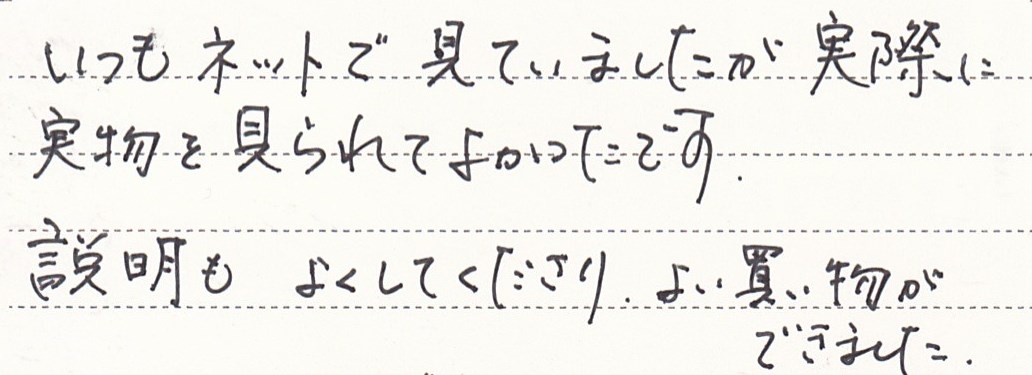 いつもネットで見ていましたが実際に
実物を見られてよかったです.
説明も よくしてくださり. よい買い物が
できました.